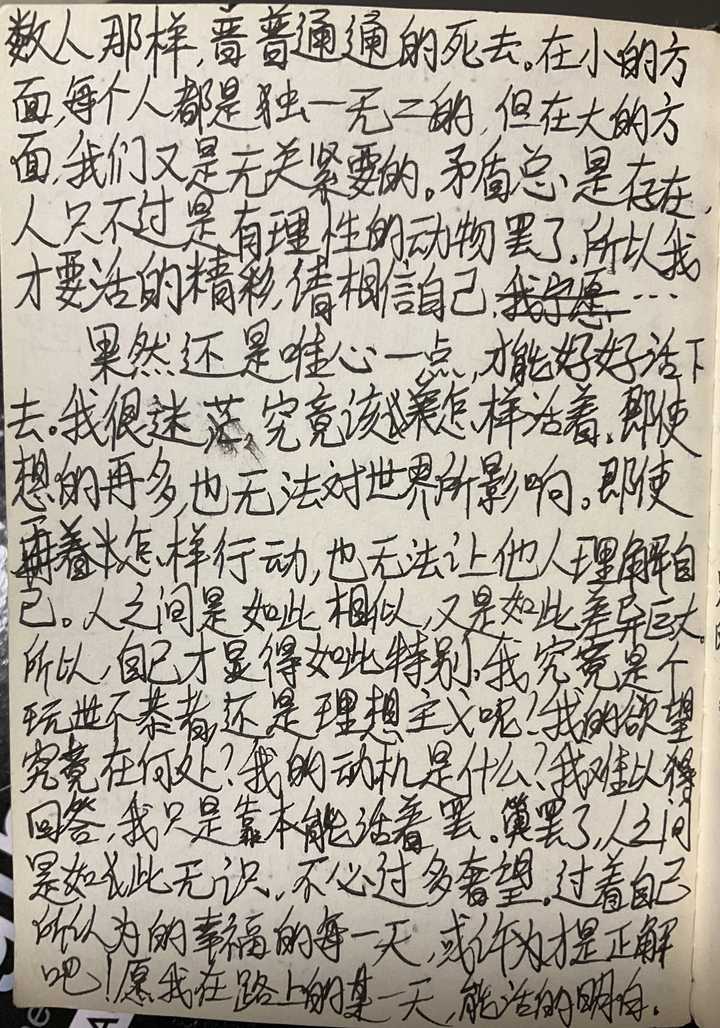 数人那样,普普通通的死去。在小的方
面,每个人都是独一无二的,但在大的方
面,我们又是无关紧要的。矛盾总是存在,
人只不过是有理性的动物罢了。所以我
才要活的精彩,请相信自己,我宁愿…
果然还是唯心一点,才能好好活下
去。我很迷茫,究竟该怎样活着。即使
想的再多,也无法对世界所影响。即使
再着怎样行动,也无法让他人理解自
己。人之间是如此相似,又是如此差异巨大。
所以,自己才显得如此特别,我究竟是个
玩世不恭者,还是理想主义呢?我的欲望
究竟在何处?我的动机是什么?我难以得
回答,我只是靠本能活着罢。算罢了,人之间
是如此无识,不必过多奢望。过着自己
所认为的幸福的每一天,或许才是正解
吧!愿我在路上的某一天,能活的明白。